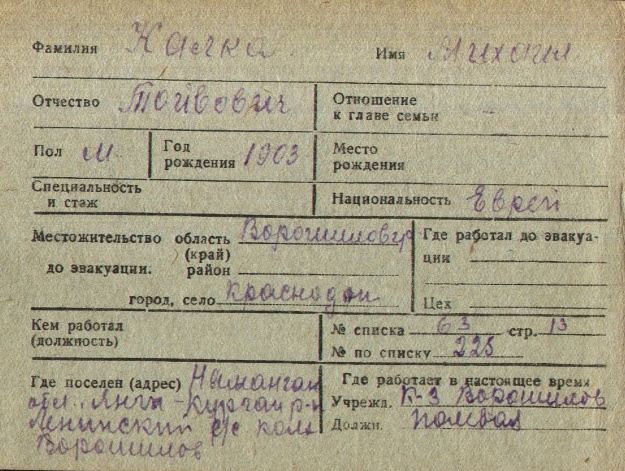 Фамилия Калка Имя Михаил
Отчество Тойвович Отношение к главе семьи -
Пол М Год рождения 1903 Место рождения
Специальность и стаж Национальность Еврей
Местожительство до эвакуации. область (край) Ворошиловгр Где работал до эвакуа-
район ции
город, село Краснодон Цех
Кем работал (должность) № списка 63 стр. 13
№ по списку 225
Где поселен (адрес) Наманган Где работает в настоящее время
обл. Янги-Курган р-н Учрежд. К-з Ворошилов
Ленинский с/с колх Должн. полевая
Ворошилов